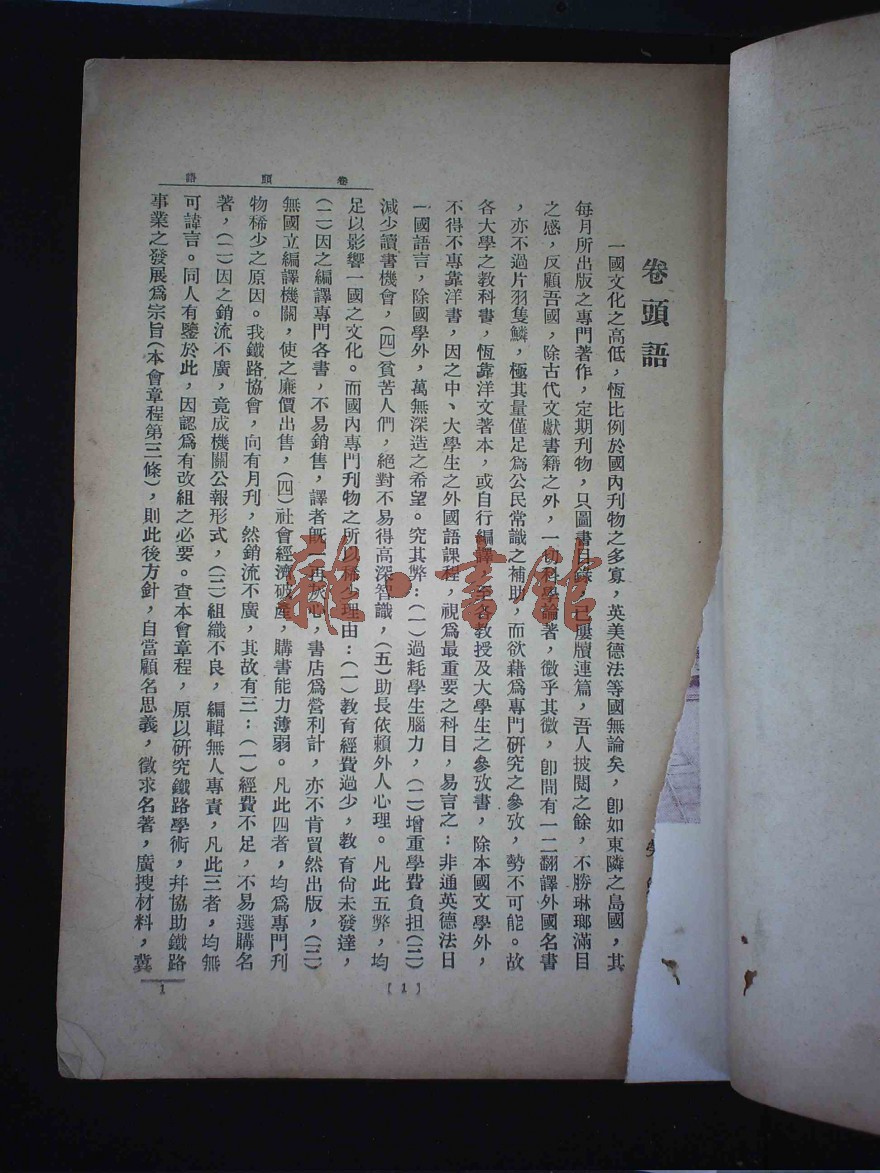 卷頭語
一國文化之高低，恆比例於國內刊物之多寡，英美德法等國無論矣，卽如東隣之島國，其
每月所出版之專門著作，定期刊物，只圖書目錄，已屢牘連篇，吾人披閱之餘，不勝琳瑯滿目
之感，反顧吾國，除古代文獻書籍之外，一切科學論著，微乎其微，卽間有一二翻譯外國名書
，亦不過片羽隻鱗，極其量僅足爲公民常識之補助，而欲藉爲專門硏究之參攷，勢不可能。故
各大學之教科書，恆靠洋文著本，或自行編譯，至各教授及大學生之參攷書，除本國文學外，
不得不專靠洋書，因之中、大學生之外國語課程，視爲最重要之科目，易言之：非通英德法日
一國語言，除國學外，萬無深造之希望。究其弊：（一）過耗學生腦力，（二）增重學費負担（三）
減少讀書機會，（四）貧苦人們，絕對不易得高深智識，（五）助長依賴外人心理。凡此五弊，均
足以影響一國之文化。而國內專門刊物之所以稀少理由：（一）教育經費過少，教育尙未發達，
（二）因之編譯專門各書，不易銷售，譯者旣一再灰心，書店爲營利計，亦不肯貿然出版，（三）
無國立編譯機關，使之廉價出售，（四）社會經濟破產，購書能力薄弱。凡此四者，均爲專門刊
物稀少之原因。我鐵路協會，向有月刊，然銷流不廣，其故有三：（一）經費不足，不易選購名
著，（二）因之銷流不廣，竟成機關公報形式，（三）組織不良，編輯無人專責，凡此三者，均無
可諱言。同人有鑒於此，因認爲有改組之必要。查本會章程，原以硏究鐵路學術，幷協助鐵路
事業之發展爲宗旨（本會章程第三條），則此後方針，自當顧名思義，徵求名著，廣搜材料，冀
卷頭語
〔1〕
1
雜·書館